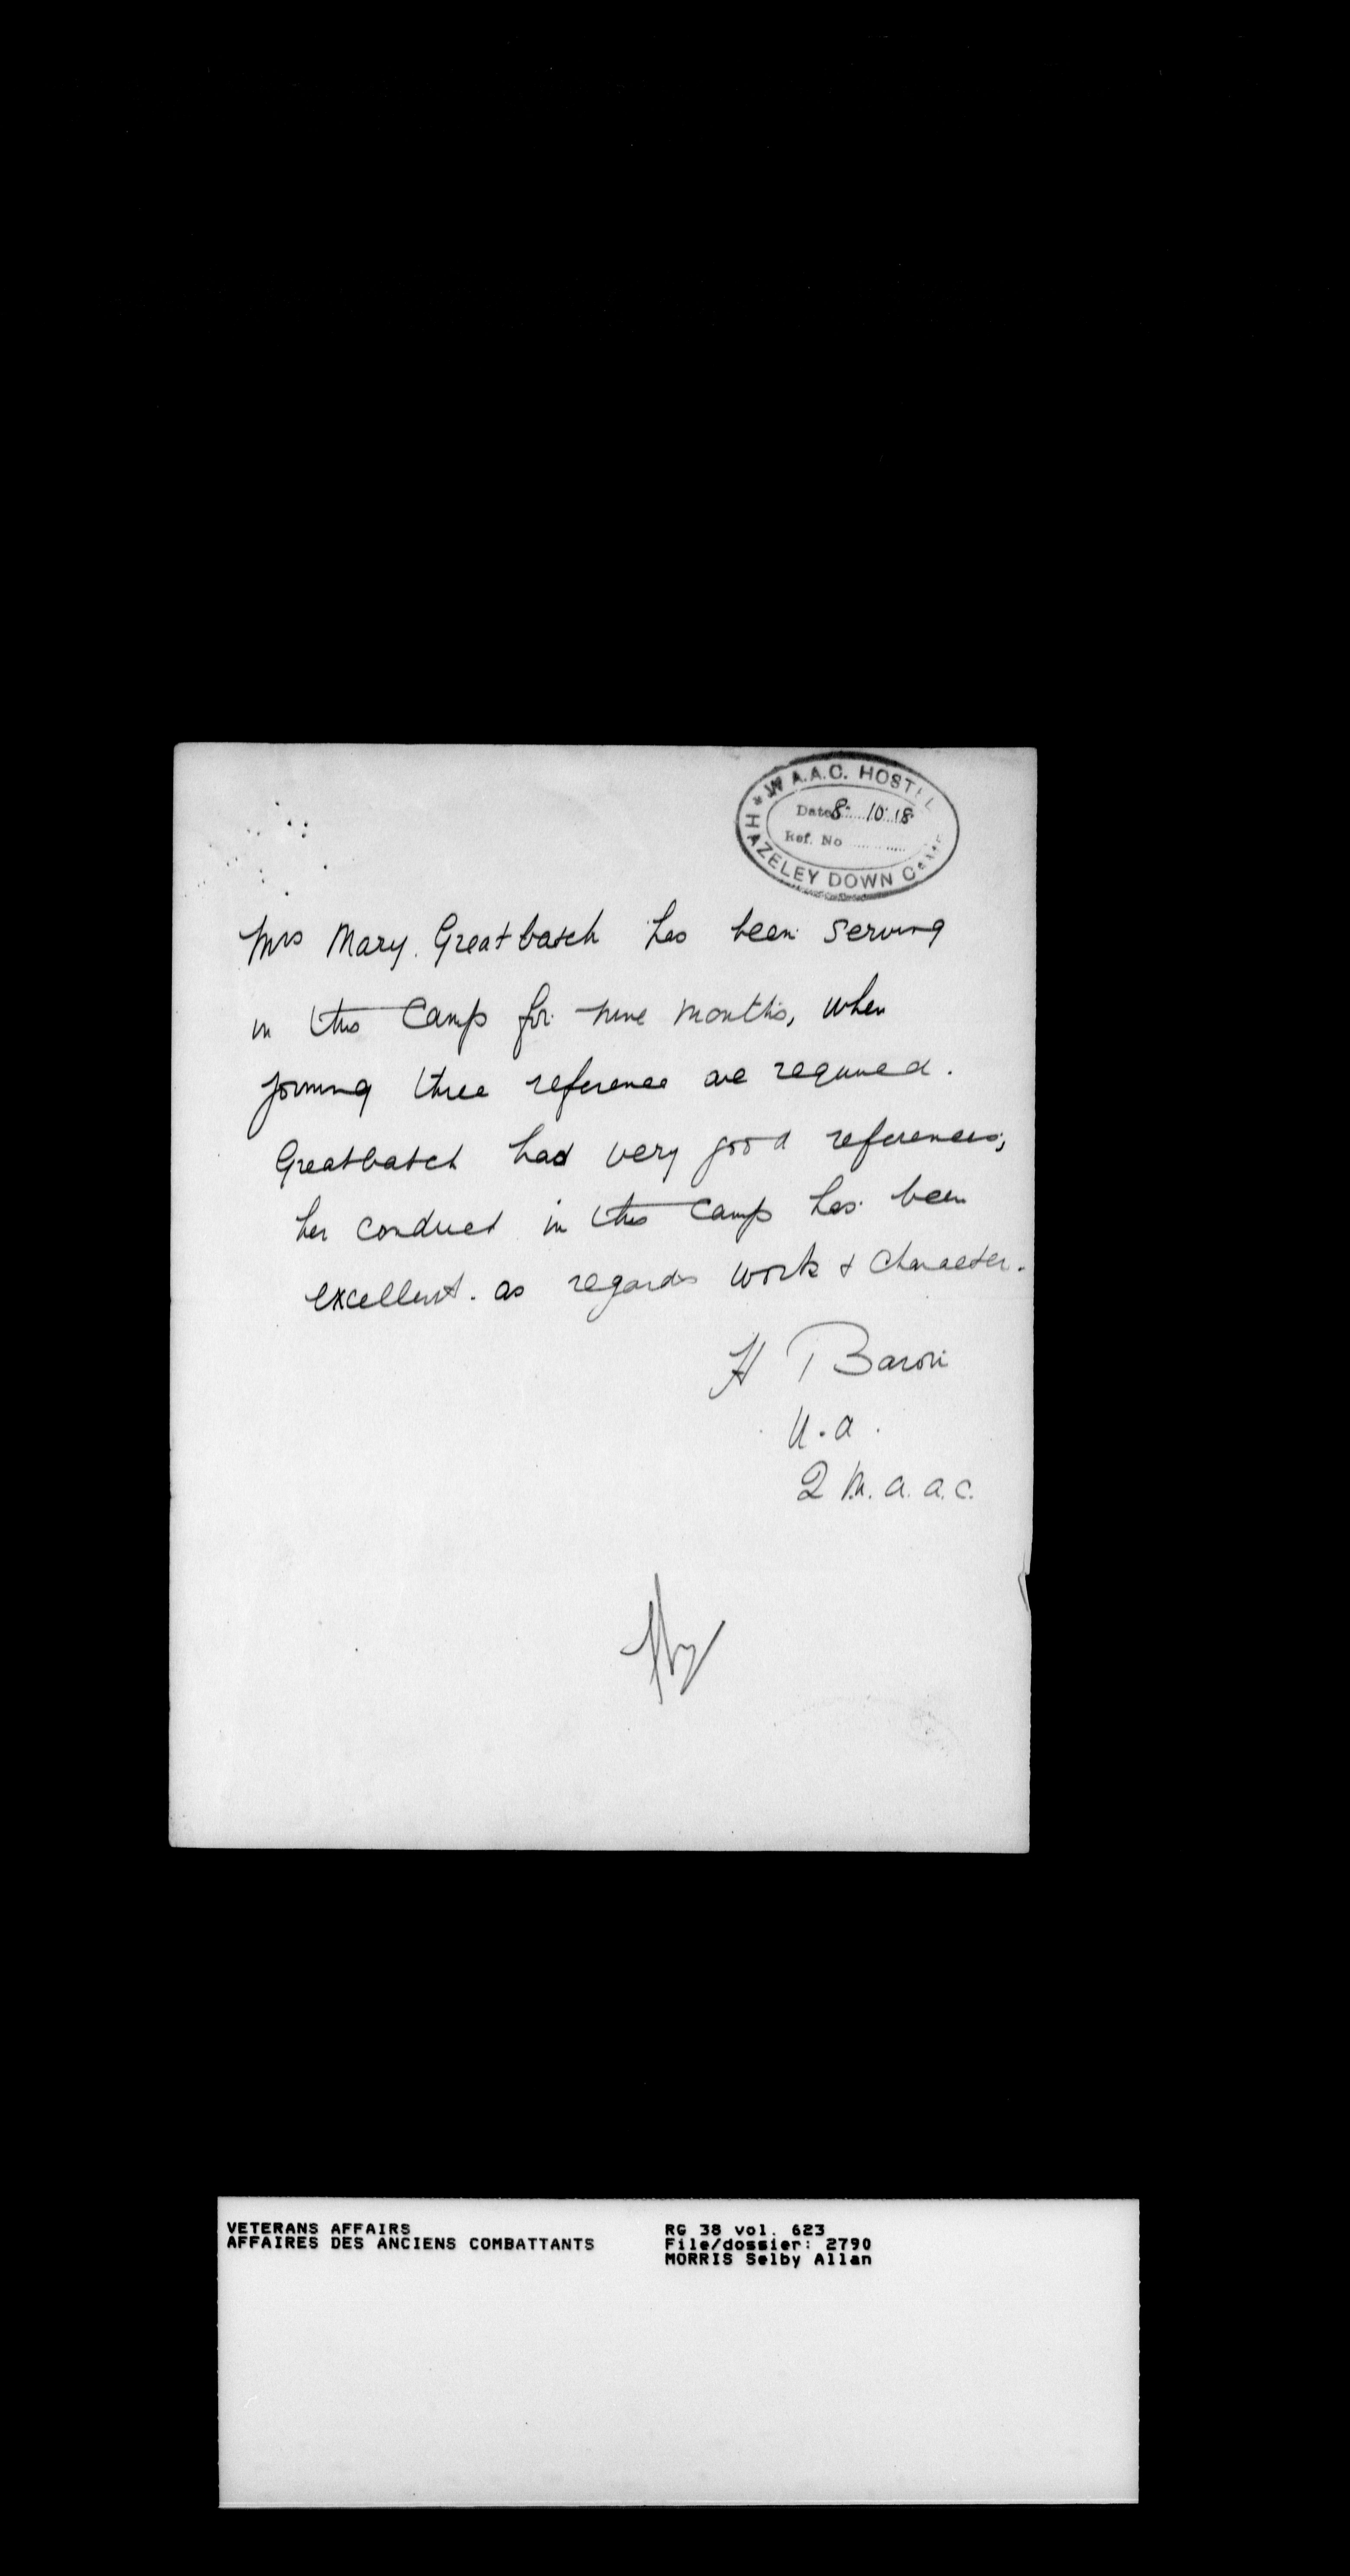 * W.A.A.C. HOSTEL
Date 8. 10. 18
Ref. No
HAZELEY DOWN CAMP
Mrs Mary. Greatbatch has been serving
in this Camp for nine months, when
joining three reference are required.
Greatbatch had very good references;
her conduct in this Camp has been
excellent. as regards work & character.
H Baron
U.A.
Q M.A.A.C.
VETERANS AFFAIRS
AFFAIRES DES ANCIENS COMBATTANTS
RG 38 vol. 623
File/dossier: 2790
MORRIS Selby Allan